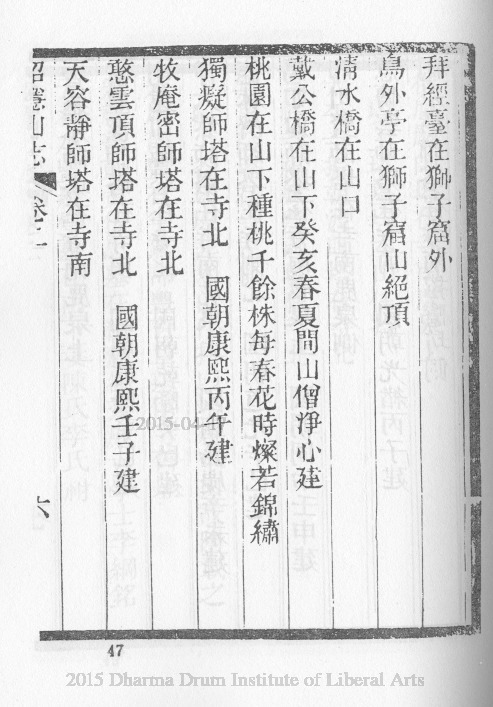 拜經臺在獅子窟外
鳥外亭在獅子窟山絕頂
清水橋在山下山口
戴公橋在山下癸亥春夏間山僧淨心建
桃園在山下種桃千餘株每春花時燦若錦繡
獨癡師塔在寺北 國朝康熙丙午建
牧庵密師塔在寺北
憨雲頂師塔在寺北 國朝康熙壬子建
天容靜師塔在寺南
招隱山志 卷二 六
2015-04
47
2015 Dharma Drum Institute of Liberal Arts